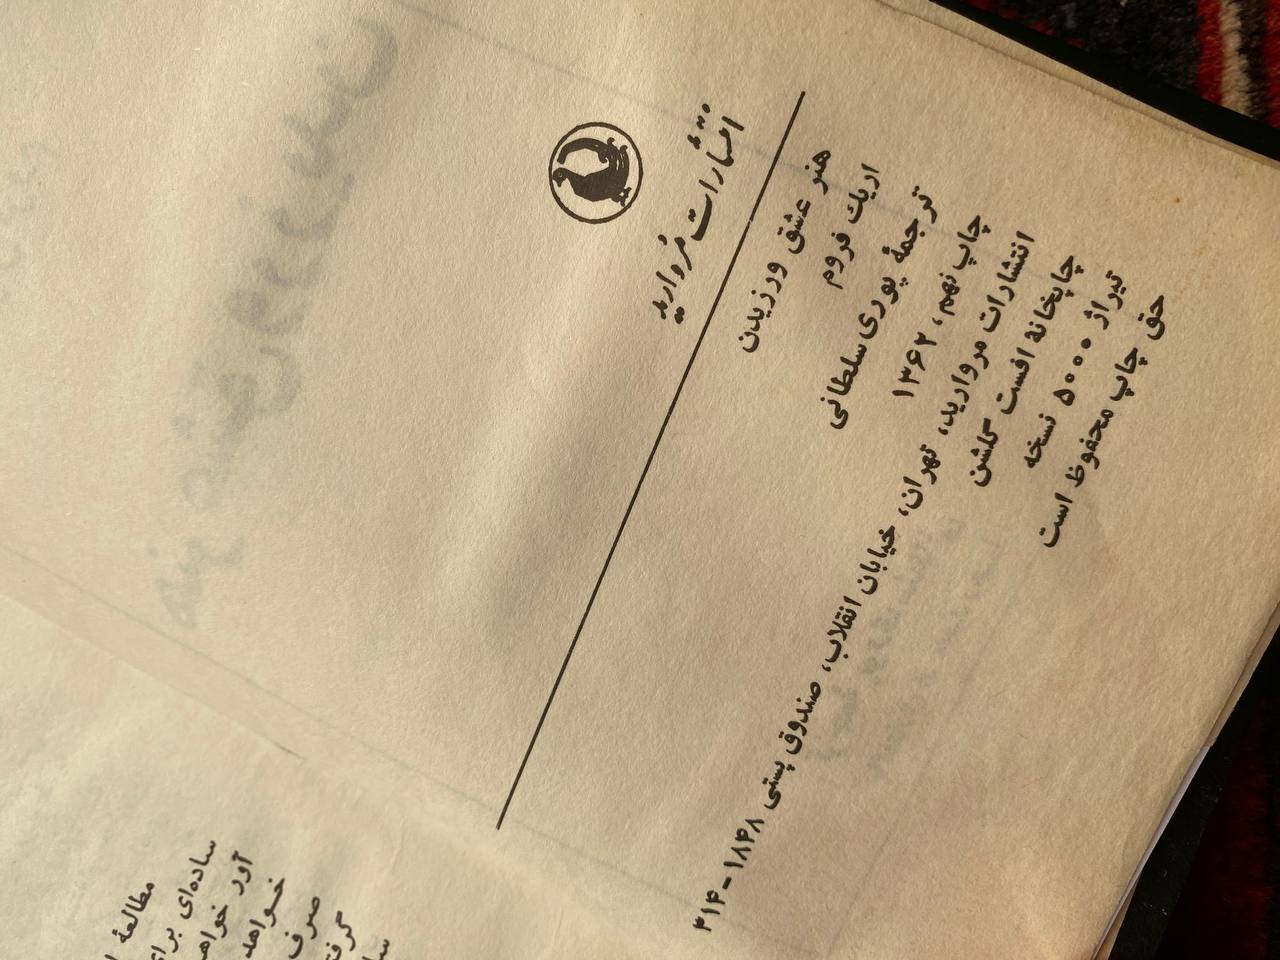 انتشارات مُروارید
هنر عشق ورزیدن
اریک فروم
ترجمهٔ پوری سلطانی
چاپ نهم، ۱۳۶۲
انتشارات مروارید، تهران، خیابان انقلاب، صندوق پستی ۱۸۴۸-۳۱۴
چاپخانهٔ افست گلشن
تیراژ ۵۰۰۰ نسخه
حق چاپ محفوظ است
مطالعهٔ
ساده‌ای برای
آور خواهد
خواهد
صرف